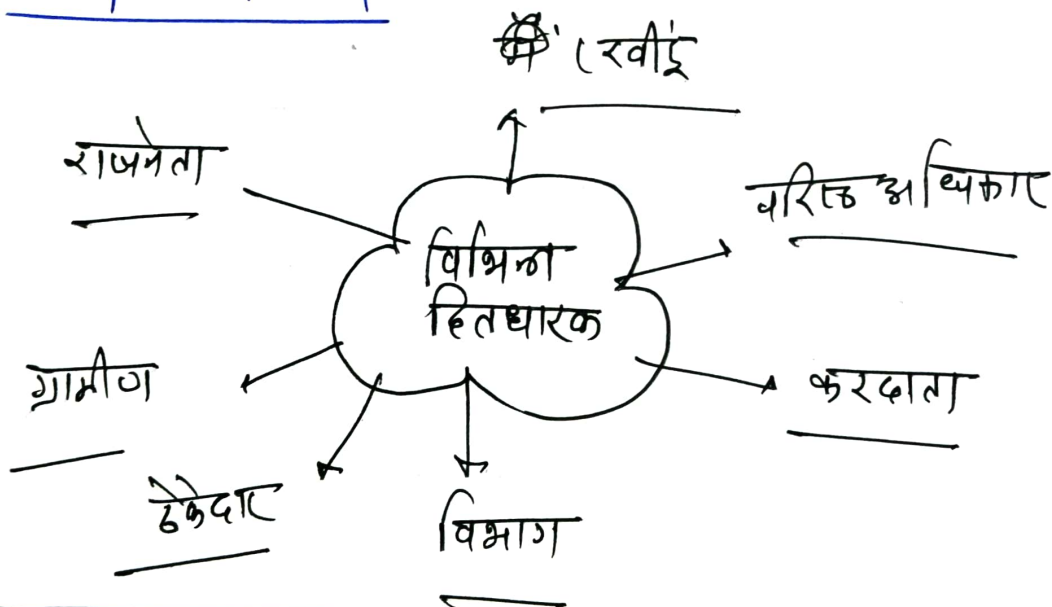 (रवींद्र
राजनेता
वरिष्ठ अधिकारी
विभिन्न
हितधारक
ग्रामीण
करदाता
ठेकेदार
विभाग